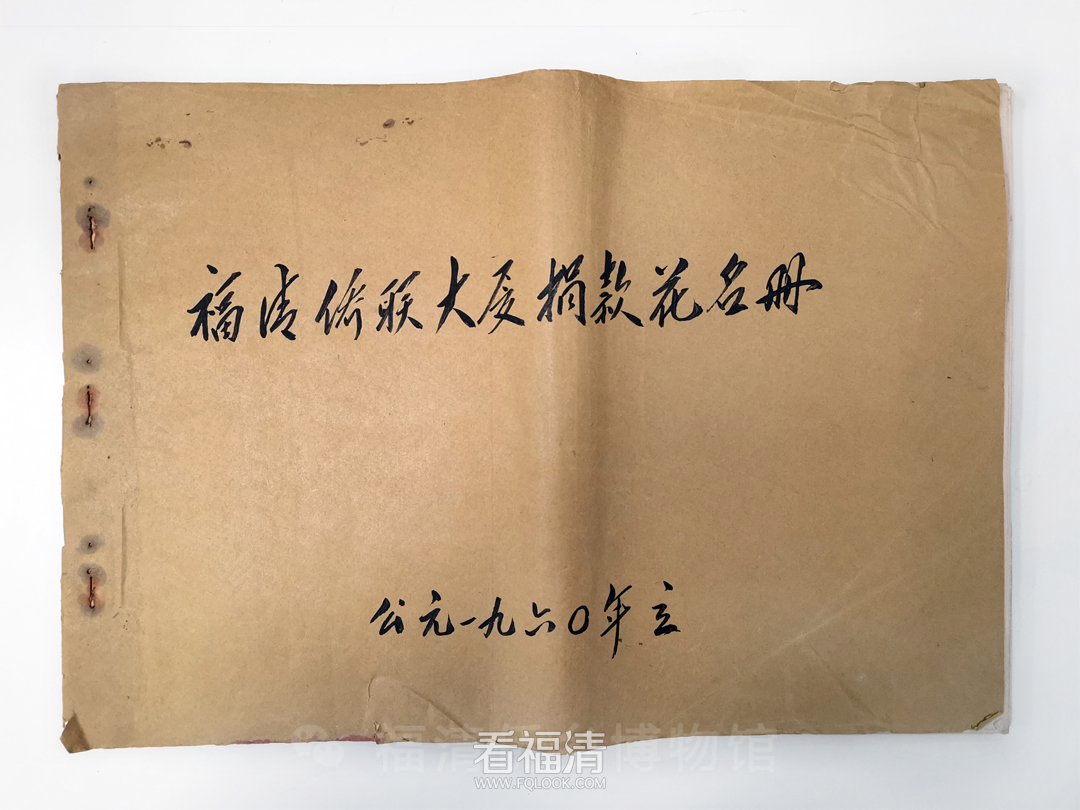 福清侨联大厦捐款花名册
公元一九六〇年立
福清侨乡博物馆
看福清
WWW.FQLOOK.COM